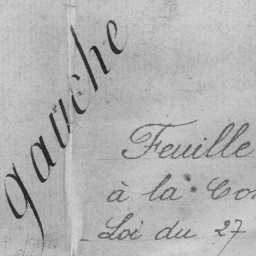 gauche
Feuille
à la Co
Loi du 27